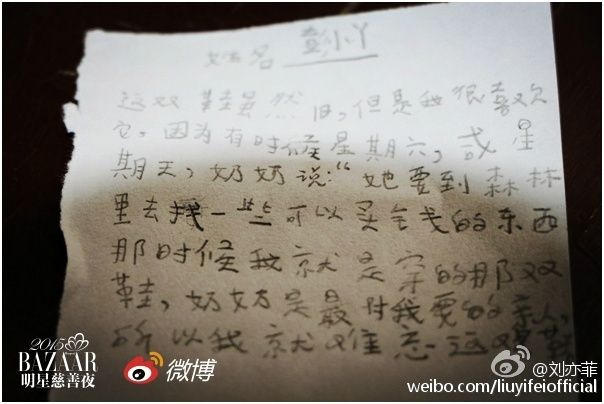 姓名 彭小丫
这双鞋虽然旧,但是我很喜欢
它,因为有时候星期六,或星
期天,奶奶说:“她要到森林
里去找一些可以买钱的东西
那时候我就是穿的那双
鞋,奶奶是最对我要的亲人,
所以我就难忘这双鞋
2015
BAZAAR
明星慈善夜
微博
@刘亦菲
weibo.com/liuyifeiofficial